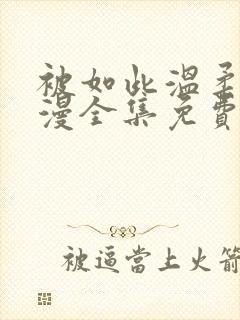 被如此溫柔
漫全集免費
被逼當上火箭